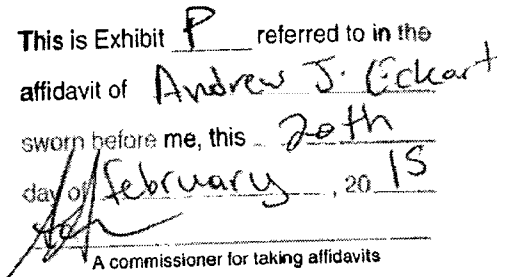 This is Exhibit P referred to in the
affidavit of Andrew J. Eckart
sworn before me, this 20th
day of february, 2015
A commissioner for taking affidavits